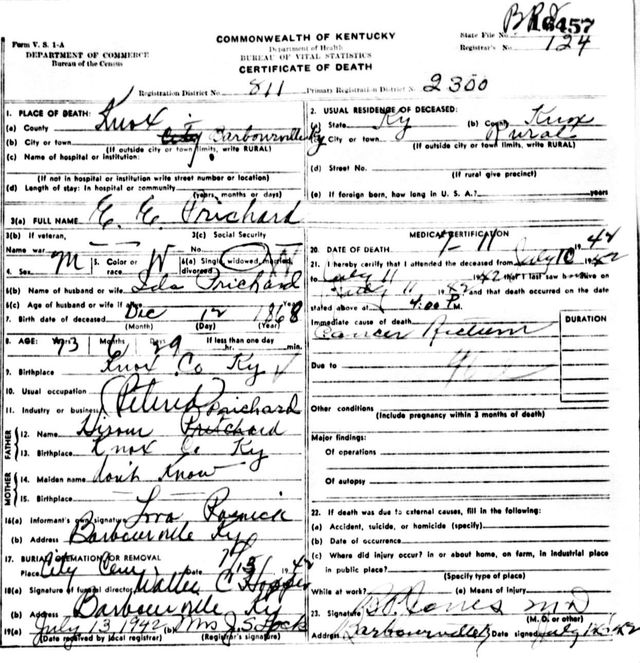 B R J
Form V. S. 1-A
COMMONWEALTH OF KENTUCKY
State File No. 16457
DEPARTMENT OF COMMERCE
Department of Health
Registrar's No. 124
Bureau of the Census
BUREAU OF VITAL STATISTICS
CERTIFICATE OF DEATH
Registration District No. 811 Primary Registration District No. 2300
1. PLACE OF DEATH:
(a) County Knox
(b) City or town City Barbourville Ky
(If outside city or town limits, write RURAL)
(c) Name of hospital or institution:
(If not in hospital or institution write street number or location)
(d) Length of stay: In hospital or community
(years, months or days)
2. USUAL RESIDENCE OF DECEASED:
(a) State Ky (b) County Knox
(c) City or town Rural
(If outside city or town limits, write RURAL)
(d) Street No.
(If rural give precinct)
(e) If foreign born, how long in U. S. A.? years
3(a) FULL NAME E. E. Prichard
3(b) If veteran, 3(c) Social Security
Name war No.
4. Sex M 5. Color or race W 6(a) Single, widowed, married, divorced
6(b) Name of husband or wife Ida Prichard
6(c) Age of husband or wife if alive Years
7. Birth date of deceased Dec 12 1868
(Month) (Day) (Year)
8. AGE: Years 73 Months 6 Days 29 If less than one day
hr. min.
9. Birthplace Knox Co Ky
10. Usual occupation Retired
11. Industry or business Prichard
FATHER
12. Name Hiram Pritchard
13. Birthplace Knox Co Ky
MOTHER
14. Maiden name don't Know
15. Birthplace
16(a) Informant's own signature
(b) Address Barbourville Ky
17. BURIAL CREMATION OR REMOVAL
Place City Cem 1942
18(a) Signature of funeral director Walter C Hopper
(b) Address Barbourville Ky
19(a) July 13 1942 (b) Mrs J. S. Lock
(Date received by local registrar) (Registrar's signature)
MEDICAL CERTIFICATION
20. DATE OF DEATH 7-11 1942
21. I hereby certify that I attended the deceased from July 10 1942
to July 11 1942 that I last saw h alive on
July 11 1942 and that death occurred on the date
stated above at 4:00 P.M.
DURATION
Immediate cause of death
Cancer Rectum
Due to
Other conditions
(Include pregnancy within 3 months of death)
Major findings:
Of operations
Of autopsy
22. If death was due to external causes, fill in the following:
(a) Accident, suicide, or homicide (specify)
(b) Date of occurrence
(c) Where did injury occur? in or about home, on farm, in industrial place
in public place?
(Specify type of place)
While at work? (e) Means of injury
23. Signature B P Jones MD
(M. D. or other)
Address Barbourville Ky Date signed July 1942